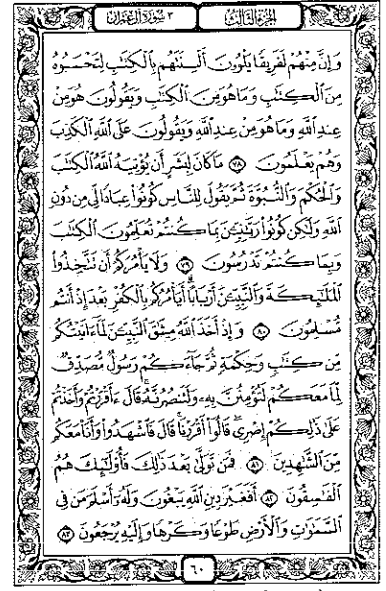 الجزء الثالث
٣ سورة آل عمران
وَإِنَّ مِنْهُمْ لَفَرِيقًا يَلْوُۥنَ أَلْسِنَتَهُم بِٱلْكِتَٰبِ لِتَحْسَبُوهُ
مِنَ ٱلْكِتَٰبِ وَمَا هُوَ مِنَ ٱلْكِتَٰبِ وَيَقُولُونَ هُوَ مِنْ
عِندِ ٱللَّهِ وَمَا هُوَ مِنْ عِندِ ٱللَّهِ وَيَقُولُونَ عَلَى ٱللَّهِ ٱلْكَذِبَ
وَهُمْ يَعْلَمُونَ ٧٨ مَا كَانَ لِبَشَرٍ أَن يُؤْتِيَهُ ٱللَّهُ ٱلْكِتَٰبَ
وَٱلْحُكْمَ وَٱلنُّبُوَّةَ ثُمَّ يَقُولَ لِلنَّاسِ كُونُوا۟ عِبَادًا لِّى مِن دُونِ
ٱللَّهِ وَلَٰكِن كُونُوا۟ رَبَّٰنِيِّۦنَ بِمَا كُنتُمْ تُعَلِّمُونَ ٱلْكِتَٰبَ
وَبِمَا كُنتُمْ تَدْرُسُونَ ٧٩ وَلَا يَأْمُرَكُمْ أَن تَتَّخِذُوا۟
ٱلْمَلَٰٓئِكَةَ وَٱلنَّبِيِّۦنَ أَرْبَابًا أَيَأْمُرُكُم بِٱلْكُفْرِ بَعْدَ إِذْ أَنتُم
مُّسْلِمُونَ ٨٠ وَإِذْ أَخَذَ ٱللَّهُ مِيثَٰقَ ٱلنَّبِيِّۦنَ لَمَآ ءَاتَيْتُكُم
مِّن كِتَٰبٍ وَحِكْمَةٍ ثُمَّ جَآءَكُمْ رَسُولٌ مُّصَدِّقٌ
لِّمَا مَعَكُمْ لَتُؤْمِنُنَّ بِهِۦ وَلَتَنصُرُنَّهُۥ قَالَ ءَأَقْرَرْتُمْ وَأَخَذْتُمْ
عَلَىٰ ذَٰلِكُمْ إِصْرِى قَالُوٓا۟ أَقْرَرْنَا قَالَ فَٱشْهَدُوا۟ وَأَنَا۠ مَعَكُم
مِّنَ ٱلشَّٰهِدِينَ ٨١ فَمَن تَوَلَّىٰ بَعْدَ ذَٰلِكَ فَأُو۟لَٰٓئِكَ هُمُ
ٱلْفَٰسِقُونَ ٨٢ أَفَغَيْرَ دِينِ ٱللَّهِ يَبْغُونَ وَلَهُۥٓ أَسْلَمَ مَن فِى
ٱلسَّمَٰوَٰتِ وَٱلْأَرْضِ طَوْعًا وَكَرْهًا وَإِلَيْهِ يُرْجَعُونَ ٨٣
٦٠